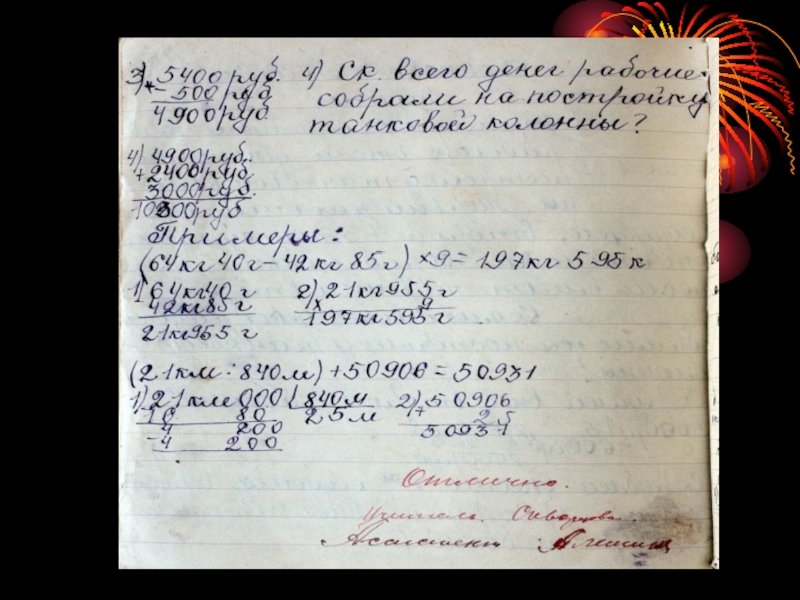 3) 5400 руб.
- 500 руб
4900 руб
4) Ск. всего денег рабочие
собрали на постройку
танковой колонны?
4) 4900 руб.
+ 2400 руб
3000 руб.
10300 руб
Примеры:
(64 кг 40 г – 42 кг 85 г) × 9 = 197 кг 595 г
1) 64 кг 40 г
42 кг 85 г
21 кг 955 г
2) 21 кг 955 г
× 9
197 кг 595 г
(21 км : 840 м) + 50906 = 50931
1) 21 км 000 840 м
16 80 25 м
4 200
- 4 200
2) 50906
+ 25
50931
Отлично.
Учитель.
Ассистент